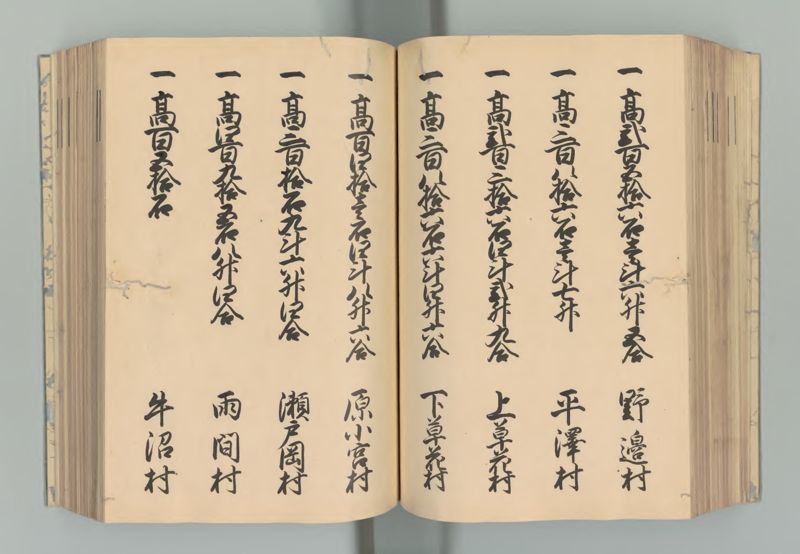 一 高弐百五拾六石壱斗六升五合 野邉村
一 高三百八拾六石壱斗七升 平澤村
一 高弐百三拾六石四斗弐升九合 上草花村
一 高三百八拾六石六斗四升六合 下草花村
一 高百四拾壱石四斗八升六合 原小宮村
一 高三百拾石九斗六升四合 瀬戸岡村
一 高四百九拾五石八升四合 雨間村
一 高百五拾石 牛沼村